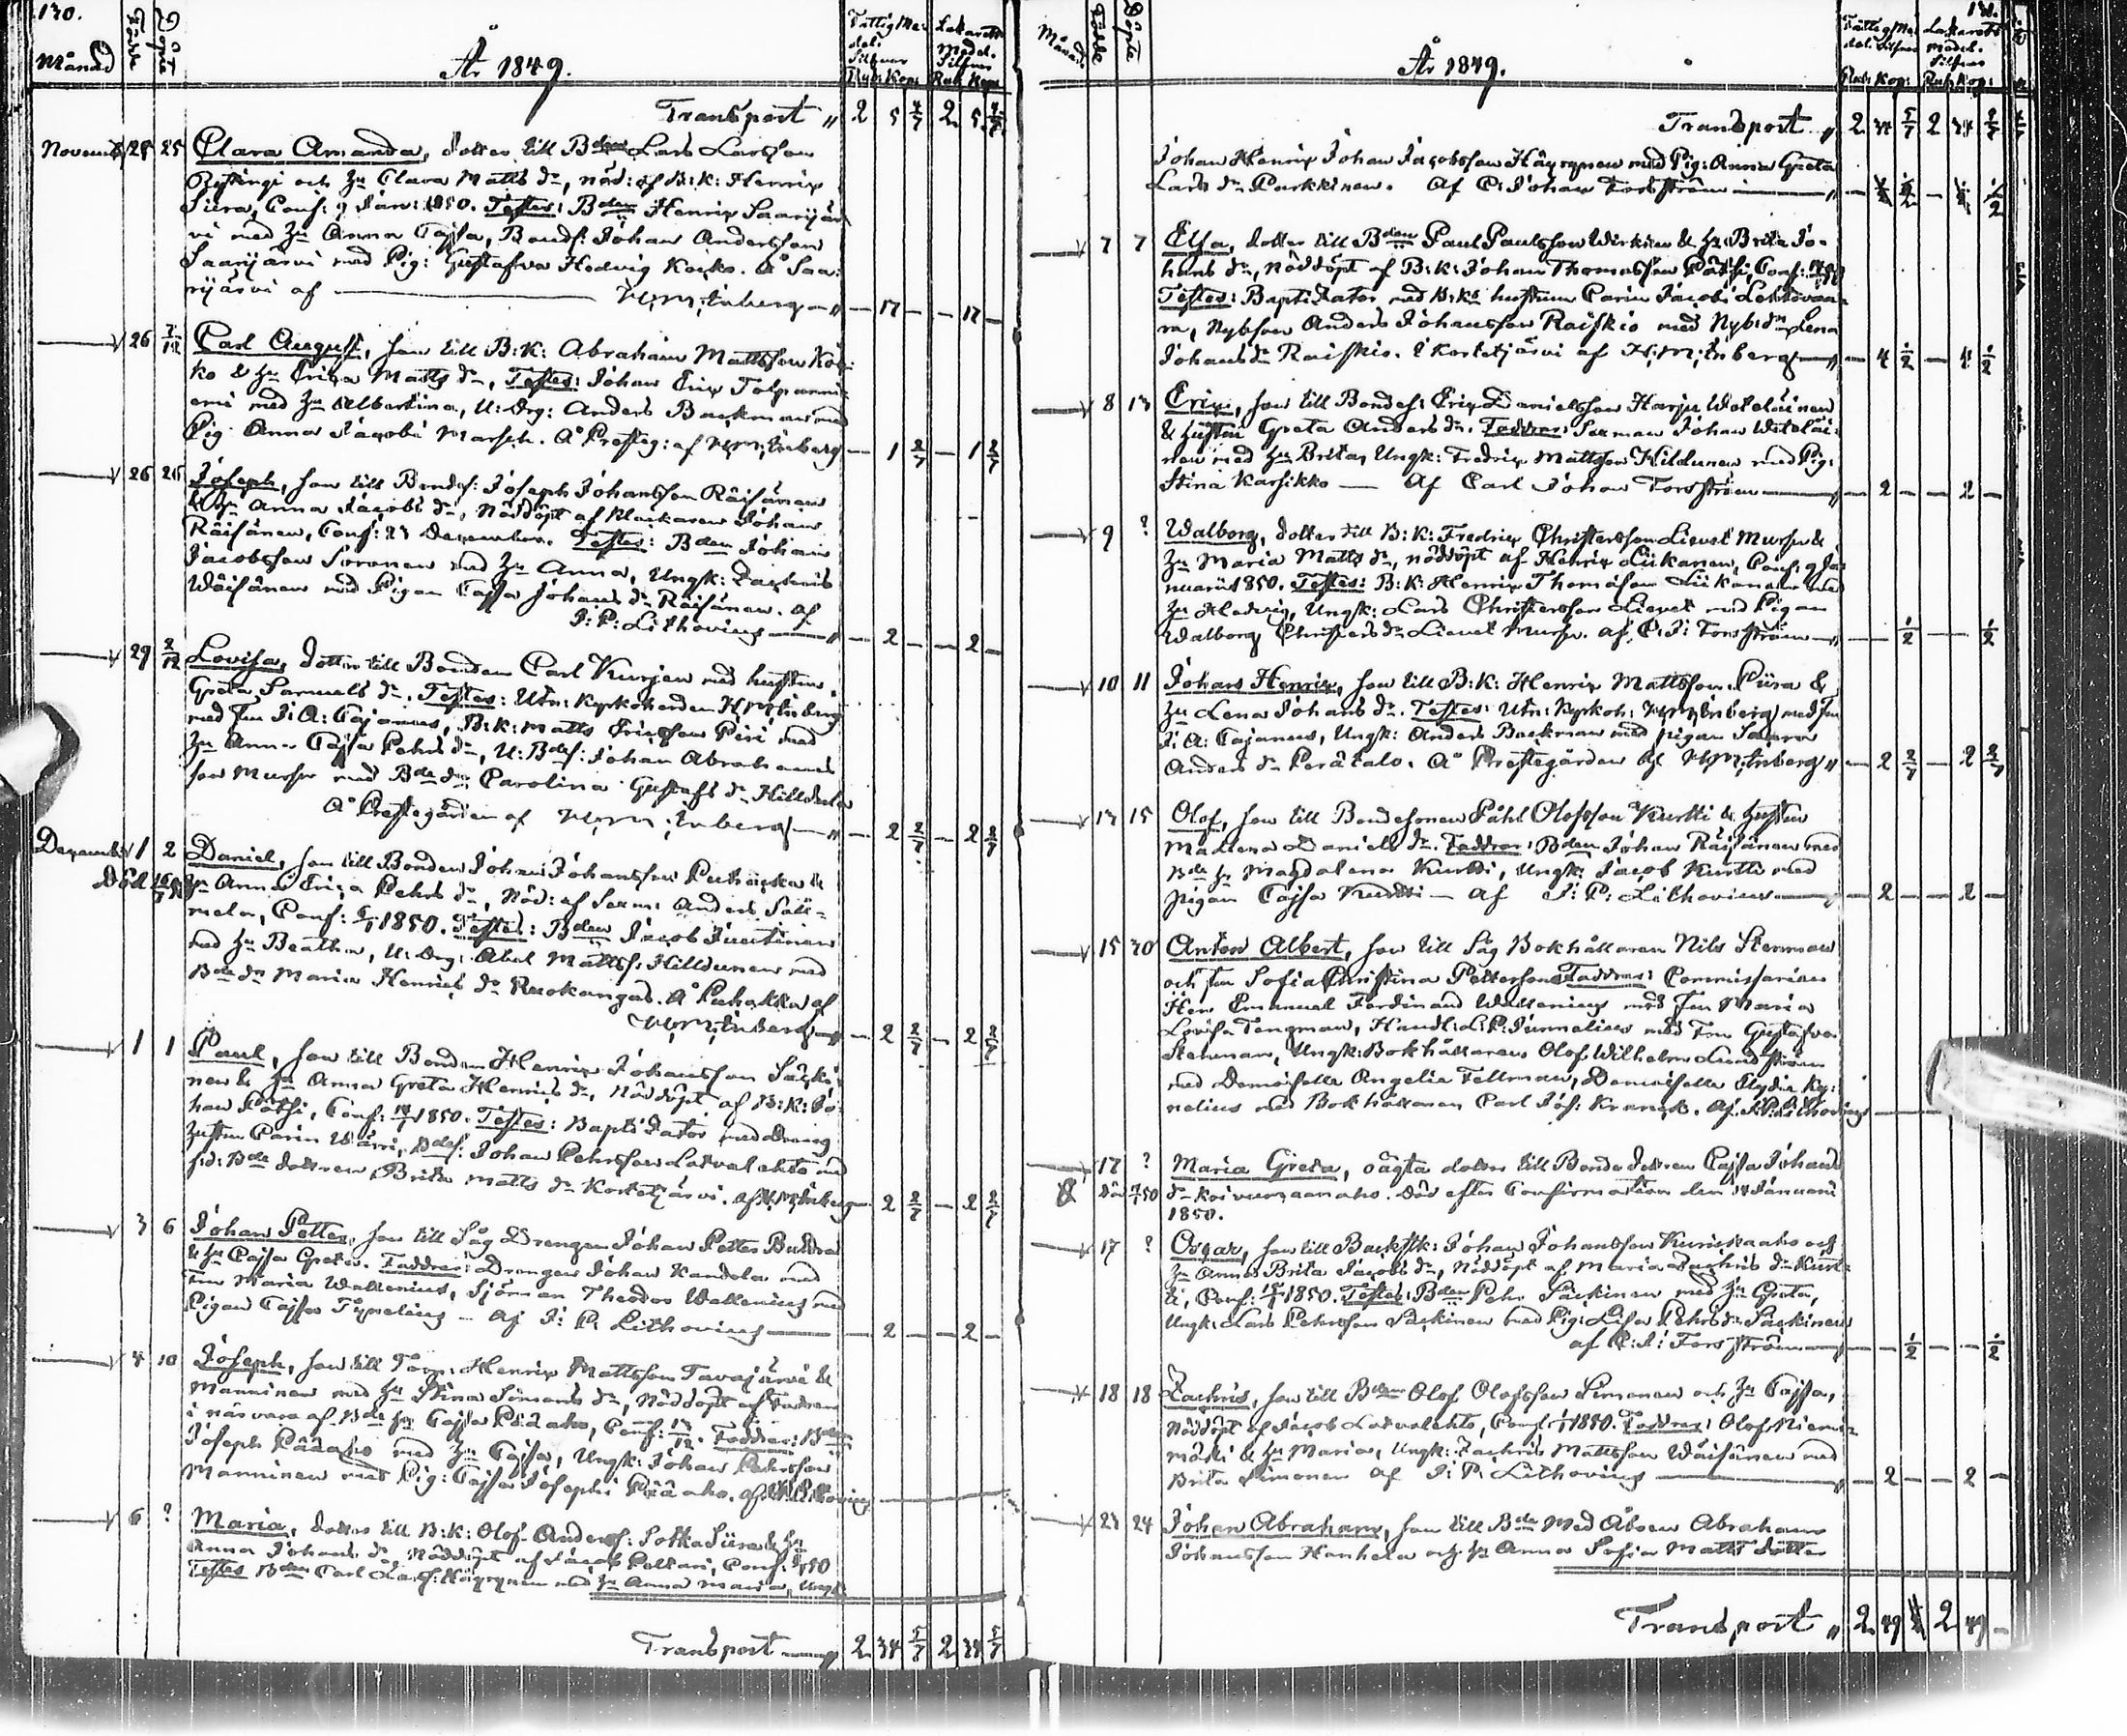 130.
Månad
Födde
Döpte
År 1849.
Fattig Me-
del.
Silfver
Rub. Kop:
Lazaretts
Medel.
Silfver
Rub. Kop:
Transport „ 2 5 4/7 2 5 4/7
Novemb 24 25 Clara Amanda, dotter till Bden Lars Larsson
och Hu Clara Matts dr, nöd: af B:K: Henrix
Siira, Conf: 9 Jan: 1850. Testes: Bden Henrix Saarijär
vi med Hu Anna Cajsa, Bondes: Johan Andersson
Saarijärvi med Pig: Gustafva Hedvig Koiko. Å Saa-
rijärvi af H:M: Enberg „ — 17 — — 17 —
26 7/12 Carl August, son till B:K: Abraham Mattsson Koi-
ko & Hu Erica Matts dr, Testes: Johan Erix Tolpanni-
emi med Hu Albertina, U: Drg: Anders Backman med
Pig: Anna Jacobi Marsch. Å Presteg: af H:M: Enberg — 1 2/7 — 1 2/7
26 26 Joseph, son till Bondes: Joseph Johansson Räisänen
& Hu Anna Jacobs dr, Nöddöpt af Klockaren Johan
Räisänen, Conf: 23 December. Testes: Bden Johan
Jacobsson Soronen med Hu Anna, Ungk: Zachris
Wäisänen med Pigan Cajsa Johans dr Räisänen. af
J: P: Lithovius „ — 2 — — 2 —
29 2/12 Lovisa, dotter till Bonden Carl Kurjen med hustru
Greta Samuels dr. Testes: Utn: Kyrkoherden H:M: Enberg
med Fru J: A: Cajanus, B:K: Matts Ericsson Piri med
Hu Anna Cajsa Pehrs dr, U: Bdes: Johan Abrahams
son Mursu med Bde dr Carolina Gustafs dr Hilldula
Å Prestegården af H:M: Enberg „ — 2 2/7 — 2 2/7
December 1 2 Daniel, son till Bonden Johan Johansson Puhakka &
Död Hu Anna Erica Pehrs dr, Nöd: af Sexm: Anders Säi-
melä, Conf: 1850. Testes: Bden Jacob Juntinen
med Hu Beatha, U: Drg: Abel Matts: Hilldunen med
Bde dr Maria Henriks dr Ruokangas. Å Puhakka af
H:M: Enberg „ — 2 2/7 — 2 2/7
1 1 Paul, son till Bonden Henrix Johansson Säcki-
nen & Hu Anna Greta Henriks dr, Nöddöpt af B:K: Jo-
han Pätsi, Conf: 1850. Testes: Baptisator med
hustru Carin Wärri, Bdes: Johan Pehrsson Latvalehto med
Bde dottren Brita Matts dr Kostetjärvi. af H:M: Enberg — 2 2/7 — 2 2/7
3 6 Johan Petter, son till Såg Drengen Johan Petter Buddra
& Hu Cajsa Greta. Faddrar: Drengen Johan Kandola med
Fru Maria Wallenius, Sjöman Theodor Wallenius med
Pigan Cajsa Typelius — af J: P: Lithovius — 2 — — 2 —
4 10 Joseph, son till Torp: Henrix Mattsson Tavajärvi &
Manninen med Hu Stina Simons dr, Nöddöpt af Fadren
i närvaro af Bde Hu Cajsa Pääaho, Conf: Faddrar: Bden
Joseph Pääaho med Hu Cajsa, Ungk: Johan Pehrsson
Manninen med Pig: Cajsa Josephs Pääaho. af J: P: Lithovius
6 ? Maria, dotter till B:K: Olof Anders: Sotka Siira & Hu
Anna Johans dr, Nöddöpt af Jacob Peltari, Conf:
Testes Bden Carl Lars: Häyrynen med Hu Anna Maria, Ungk
Transport „ 2 34 5/7 2 34 5/7
131.
Månad
Födde
Döpte
År 1849.
Fattig Me-
del. Silfver
Rub: Kop:
Lazaretts
Medel.
Silfver
Rub: Kop:
Transport „ 2 34 5/7 2 34 5/7
Johan Henrix Johan Jacobsson Häyrynen med Pig: Anna Greta
Lars dr Purkkinen. Af C: Johan Forsström
7 7 Elsa, dotter till Bden Paul Paulsson Wirkkunen & Hu Brita Jo-
hans dr, Nöddöpt af B:K: Johan Thomasson Pätsi, Conf:
Testes: Baptisator med B:Ks hustrun Carin Jacobs Lehtovaa-
ra, Nybson Anders Johansson Raiskio med Nyb: dr Lena
Johans dr Raiskio. i Kostetjärvi af H:M: Enberg „ — 4 1/2 — 4 1/2
8 13 Erix, son till Bondes: Erix Danielsson Harju Wetelainen
& hustru Greta Anders dr. Faddrar: Sexman Johan Wetelai-
nen med Hu Brita, Ungk: Fredrix Mattsson Hildunen med Pig:
Stina Karsikko — Af Carl Johan Forsström „ — 2 — — 2 —
9 ? Walborg, dotter till B:K: Fredrix Christersson Lievet Mursu &
Hu Maria Matts dr, nöddöpt af Henrix Liikanen, Conf: 9 Ja-
nuarii 1850. Testes: B:K: Henrix Thomasson Liikanen med
Hu Hedvig, Ungk: Lars Christersson Lievet med Pigan
Walborg Christers dr Lievet Mursu. af C: J: Forsström „ — 1/2 — 1/2
10 11 Johan Henrix, son till B:K: Henrix Mattsson Piira &
Hu Lena Johans dr. Testes: Utn: Kyrkoh: H:M: Enberg med Fru
J: A: Cajanus, Ungk: Anders Backman med pigan Saara
Anders dr Perätalo. Å Prestegården af H:M: Enberg „ — 2 2/7 — 2 2/7
13 15 Olof, son till Bondesonen Påhl Olofsson Kurtti & hustru
Madlena Daniels dr. Faddrar: Bden Johan Räisänen med
Bde Hu Magdalena Kurtti, Ungk: Jacob Kurtti med
pigan Cajsa Kurtti — af J: P: Lithovius — 2 — — 2 —
15 30 Anton Albert, son till Såg Bokhållaren Nils Stenman
och fru Sofia Christina Petterson Faddrar: Commissarien
Herr Emanuel Ferdinand Wallenius med Fru Maria
Lovisa Tengman, Handl: L: P: Junnelius med Fru Gustafva
Stenman, Ungk: Bokhållaren Olof Wilhelm Lundström
med Demoiselle Angelie Fellman, Demoiselle Elydia
nelius med Bokhållaren Carl Jos: Kranck. af J: P: Lithovius
17 ? Maria Greta, oägta dotter till Bonde dottren Cajsa Johans
död dr Koivumaanaho. död efter Confirmation den 14 Januarii
1850.
17 ? Oscar, son till Backstk: Johan Johansson Kuriskaaho och
Hu Anna Brita Jacobs dr, Nöddöpt af Maria Zachris dr Kurt-
ti, Conf: 1850. Testes: Bden Pehr Säckinen med Hu Greta,
Ungk: Lars Pehrsson Säckinen med Pig: Lisa Pehrs dr Säckinen
af C: J: Forsström — 1/2 — 1/2
18 18 Zachris, son till Bden Olof Olofsson Simonen och Hu Cajsa,
Nöddöpt af Jacob Latvalehto, Conf: 1850. Faddrar: Olof Niemi-
mäki & Hu Maria, Ungk: Zachris Mattsson Wäisänen med
Brita Simonen af J: P: Lithovius „ — 2 — — 2 —
23 24 Johan Abraham, son till Bde Med Åboen Abraham
Johansson Hanhela och Hu Anna Sofia Matts dotter
Transport „ 2 49 2 49 —